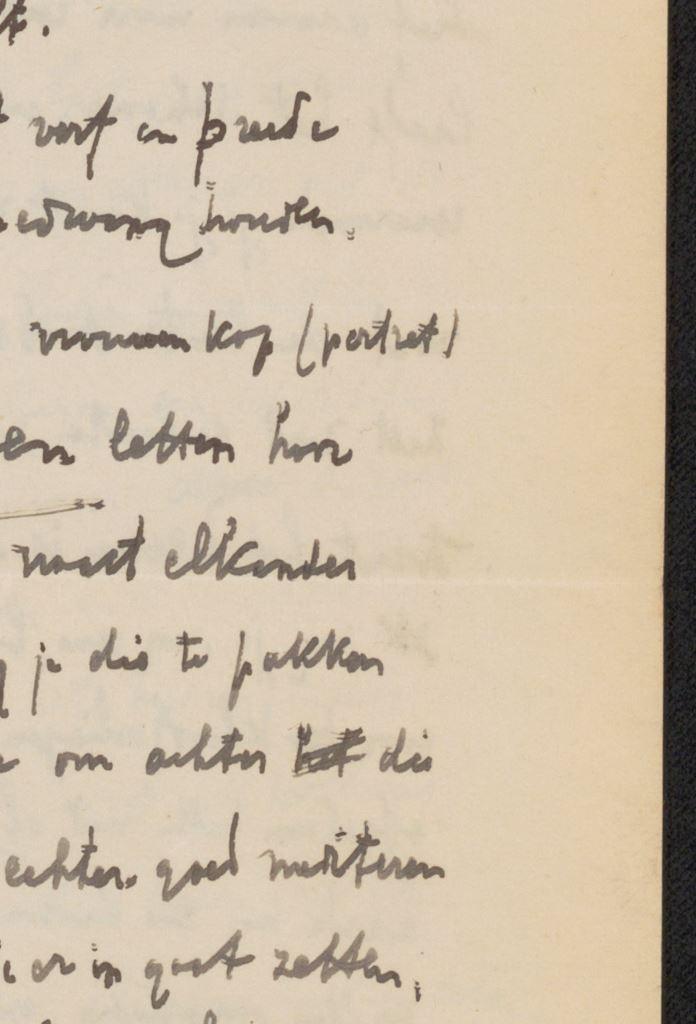 verf en
bedwang houden.
vrouwenkop (portret)
en letten hoe
naast elkander
je die te pakken
om achter het die
echter. goed mediteren
er in gaat zetten.